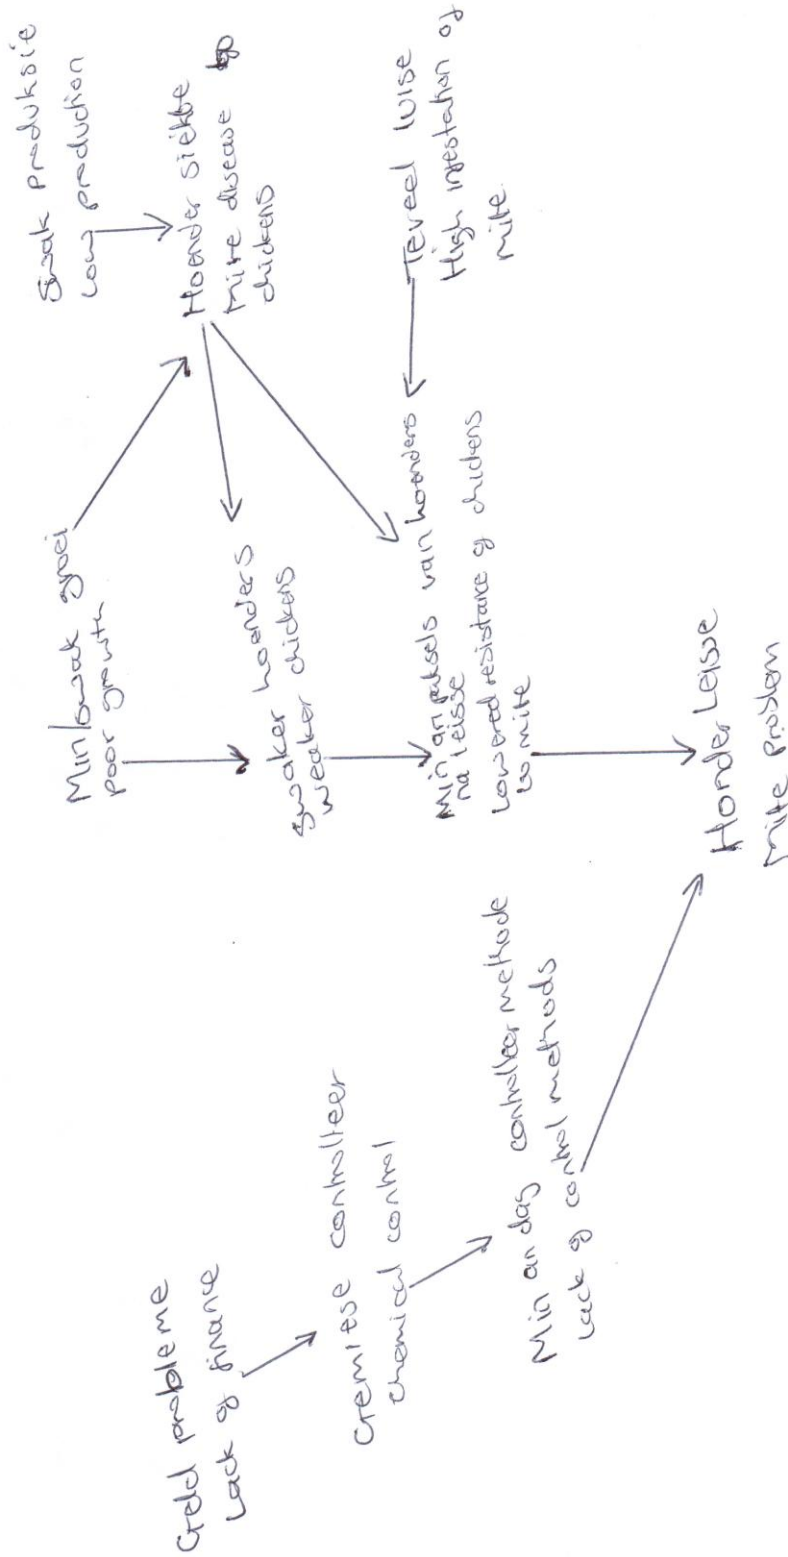 Geld probleme
Lack of finance
Gemiese controlleer
chemical control
Min an dag controlleer methode
Lack of control methods
Min/swak groei
poor growth
Swaker hoenders
weaker chickens
Min van hoenders
na leisse
Lowered resistance of chickens
to mite
Honder Leisse
Mite problem
Swak produksie
Low production
Hoender siekte
Mite disease
chickens
Teveel luise
High infestation of
mite